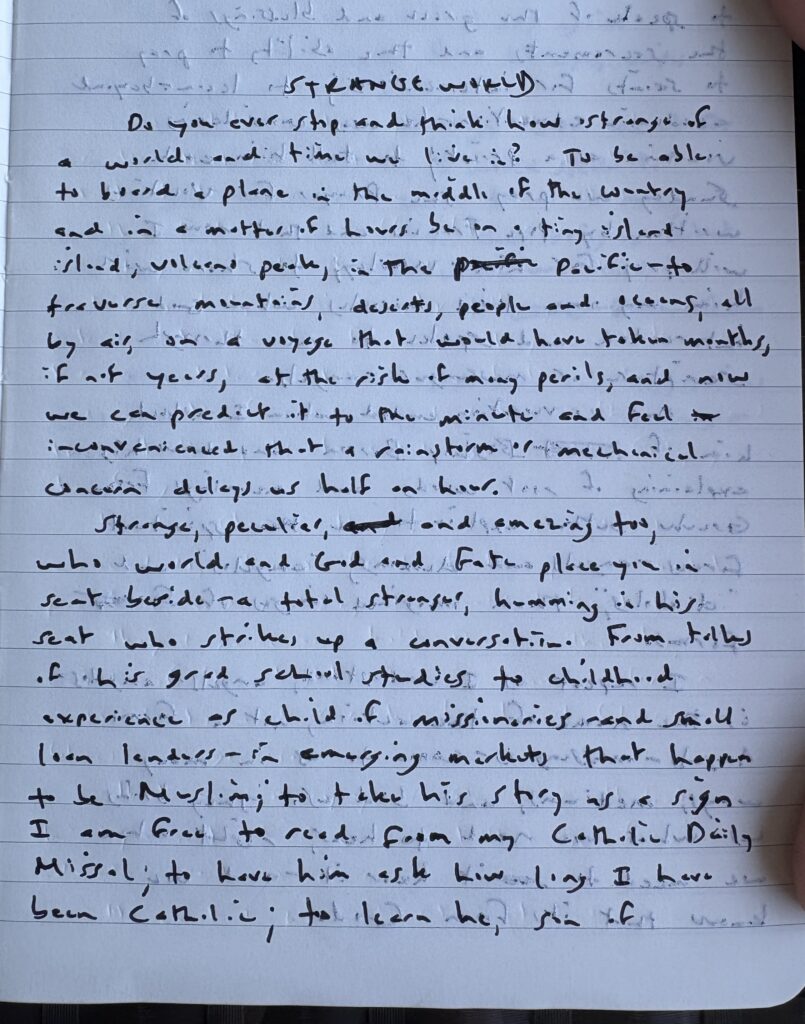 STRANGE WORLD
Do you ever stop and think how strange of
a world and time we live in? To be able
to board a plane in the middle of the country
and in a matter of hours be on a tiny island
island, volcano peak, in the pacific Pacific - to
traverse mountains, deserts, people and oceans, all
by air, on a voyage that would have taken months,
if not years, at the risk of many perils, and now
we can predict it to the minute and feel
inconvenienced that a rainstorm or mechanical
concern delays us half an hour.
Strange, peculiar, and and amazing too,
who world and God and Fate place you in
seat beside - a total stranger, humming in his
seat who strikes up a conversation. From talks
of his grad school studies to childhood
experience as child of missionaries - and small
loan lenders - in emerging markets that happen
to be Muslim; to take his story as a sign
I am free to read from my Catholic Daily
Missal; to have him ask how long I have
been Catholic; to learn he, son of